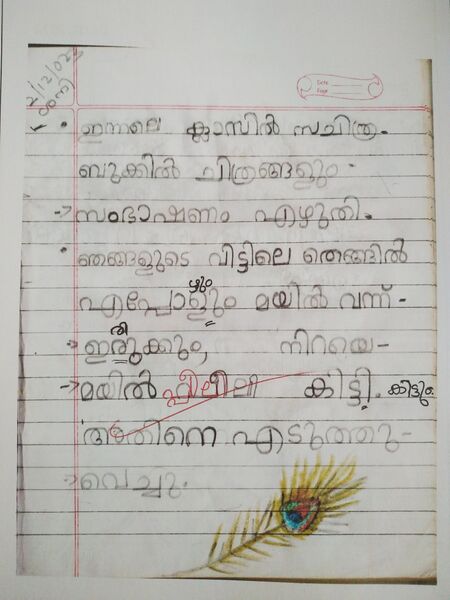 2/12/02
Date
Page
• ഇന്നലെ ക്ലാസിൽ സചിത്ര-
ബുക്കിൽ ചിത്രങ്ങളും-
-> സംഭാഷണം എഴുതി.
• ഞങ്ങളുടെ വീട്ടിലെ തെങ്ങിൽ
ഴും
എപ്പോളും മയിൽ വന്ന്-
രി
ഇരുക്കും, നിറയെ-
-> മയിൽ പീലീ കിട്ടി. കിട്ടും.
അതിനെ എടുത്തു-
വെച്ചു.